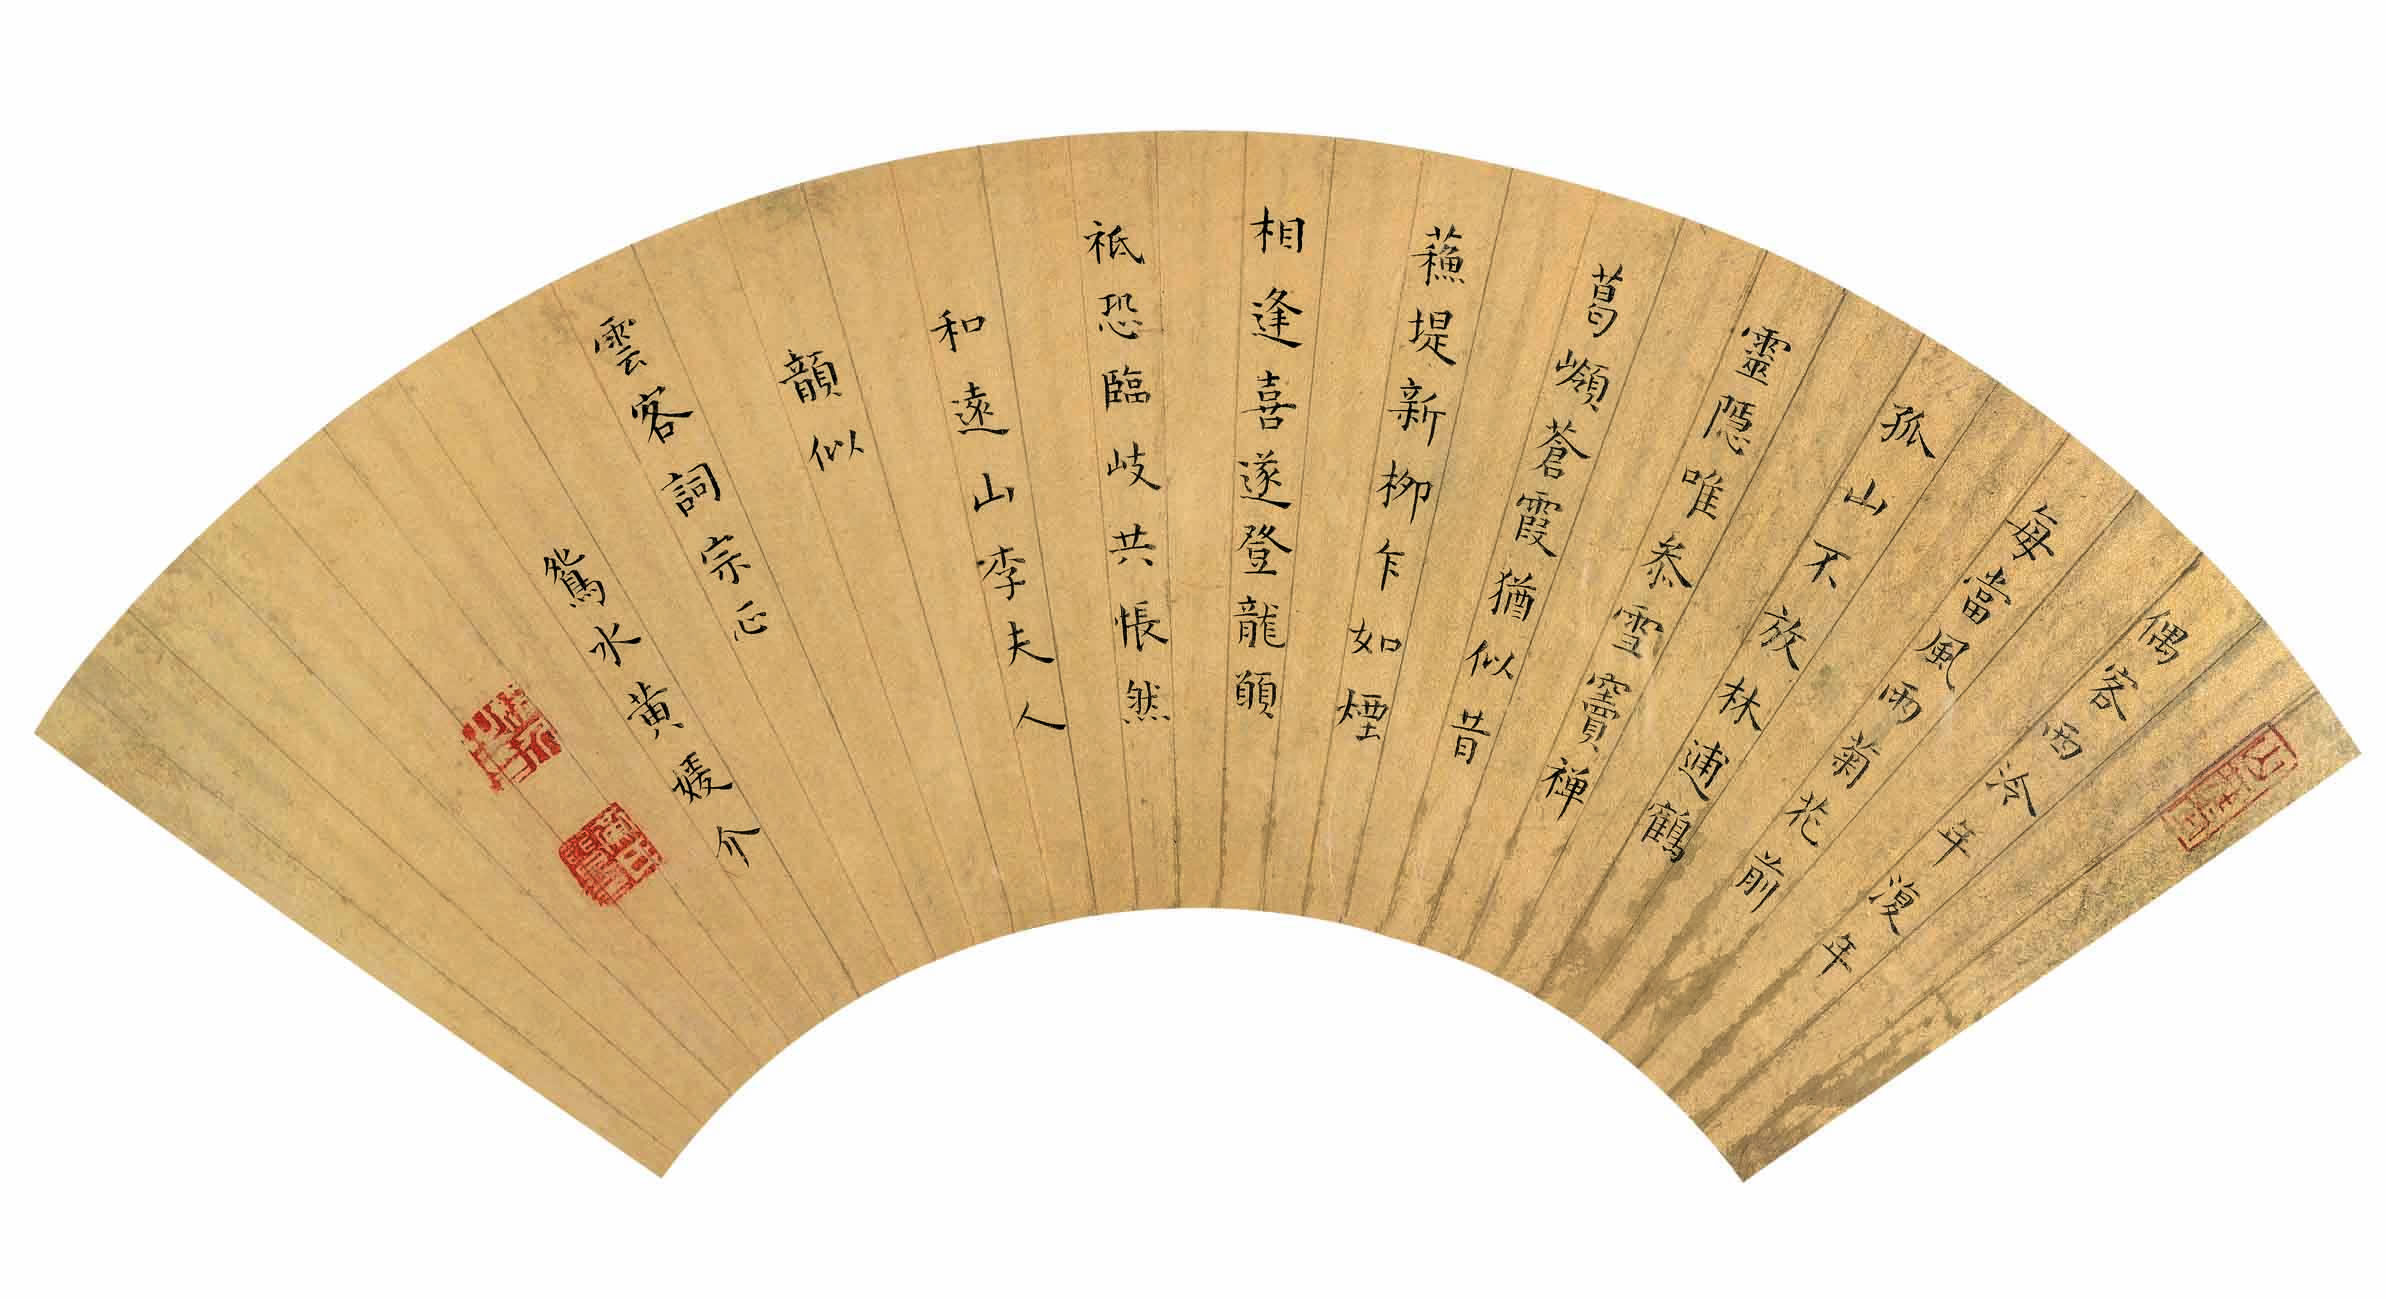 偶客西泠年復年
每當風雨菊花前
孤山不放林逋鶴
靈隱唯叅雪竇禪
葛嶺蒼霞猶似昔
蘓堤新栁乍如煙
相逢喜遂登龍願
祗恐臨岐共悵然
和遠山李夫人
韻似
雲客詞宗正
鴛水黃媛介